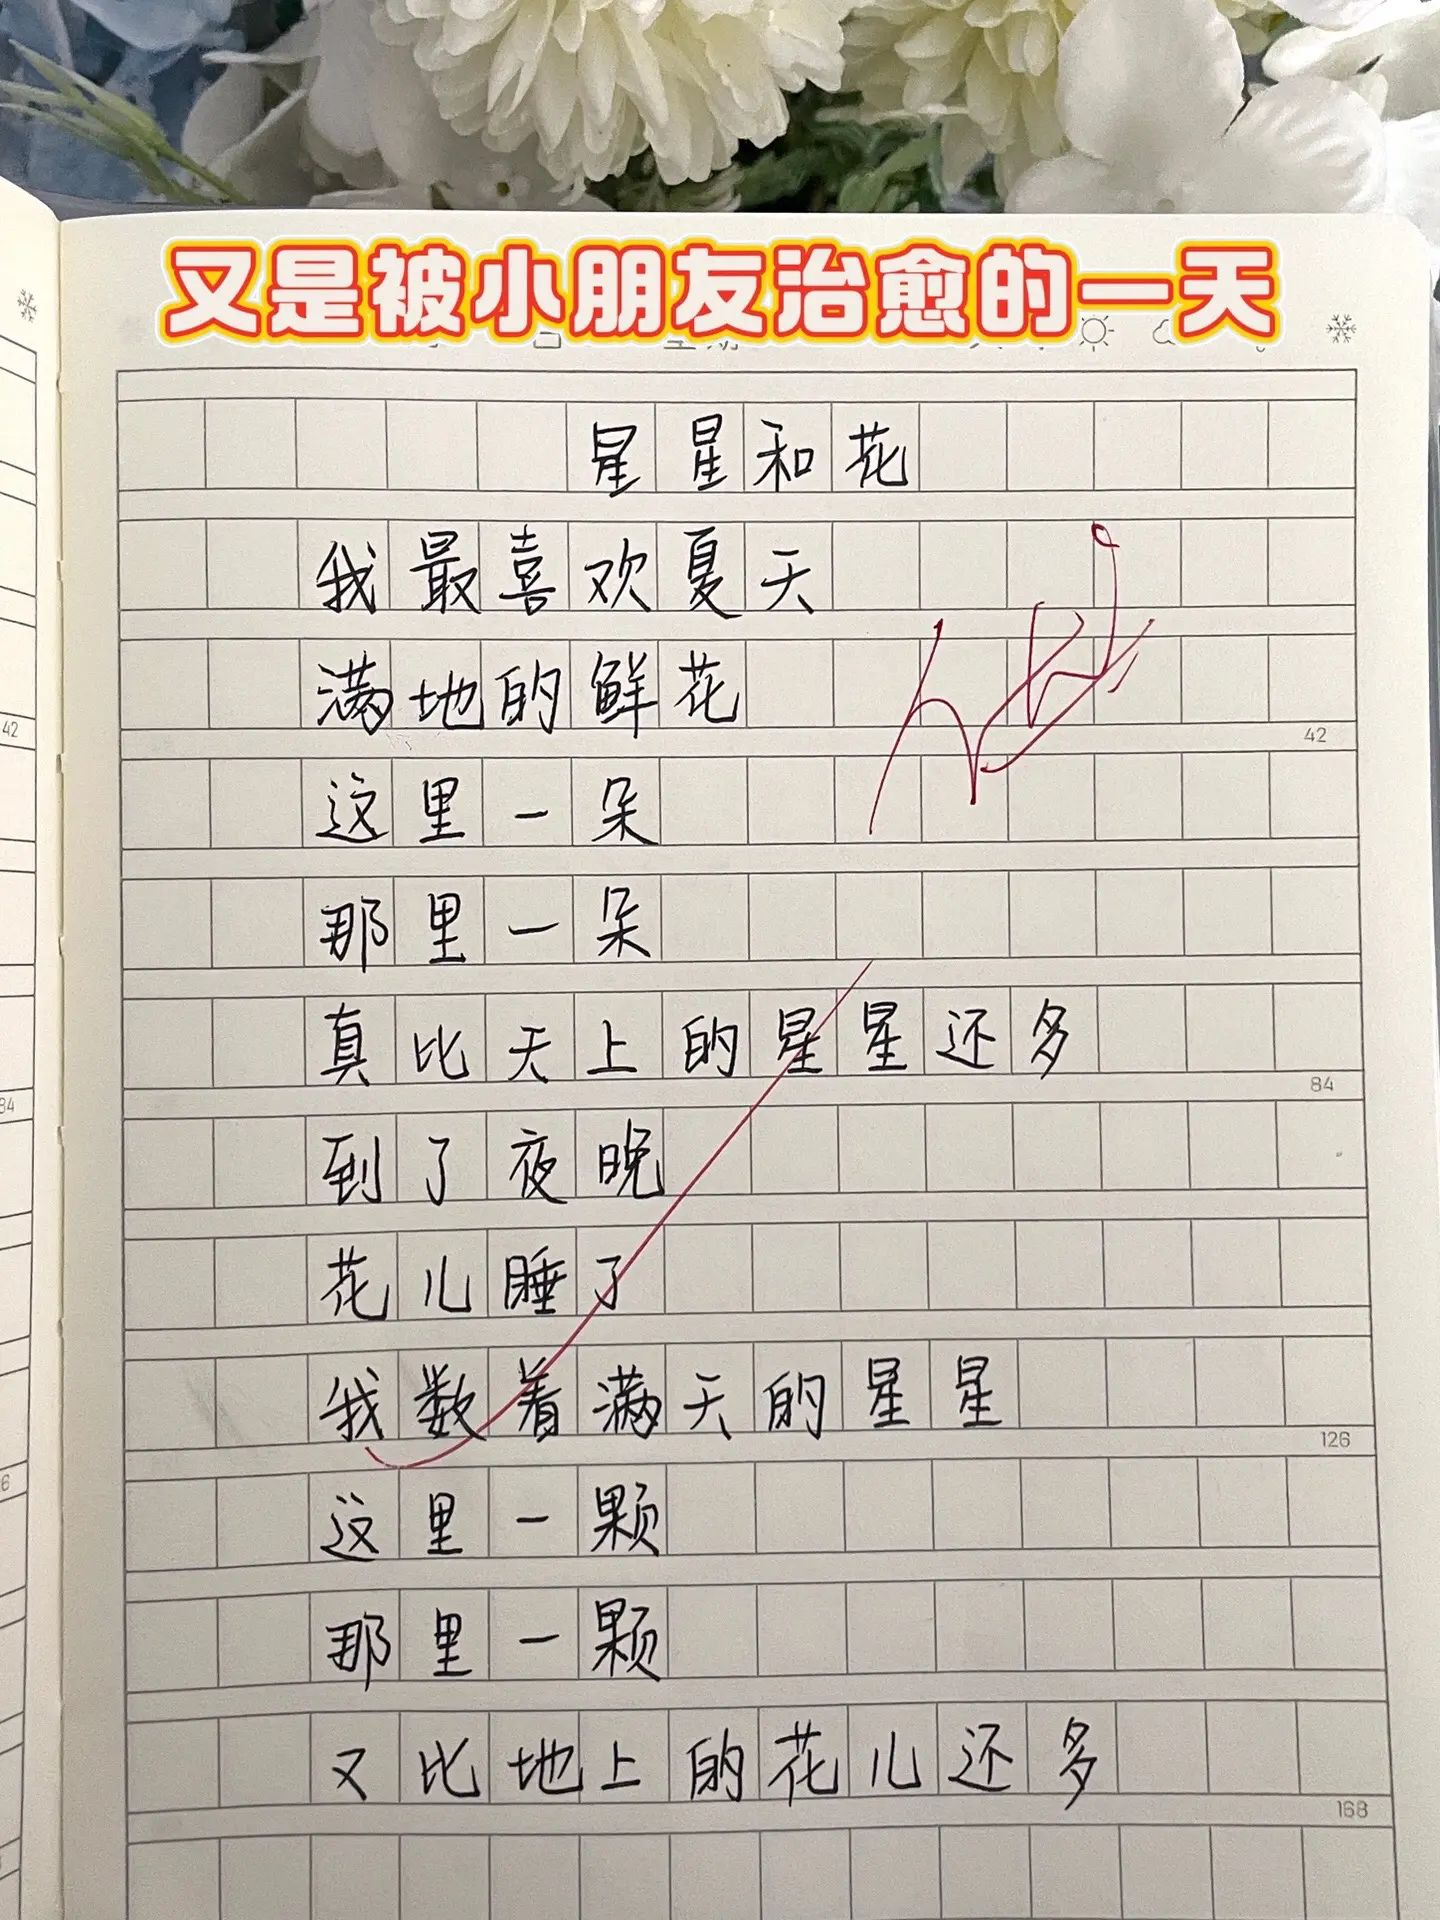 又是被小朋友治愈的一天
星星和花
我最喜欢夏天
满地的鲜花
42
42
这里一朵
那里一朵
真比天上的星星还多
84
84
到了夜晚
花儿睡了
我数着满天的星星
126
6
这里一颗
那里一颗
又比地上的花儿还多
168